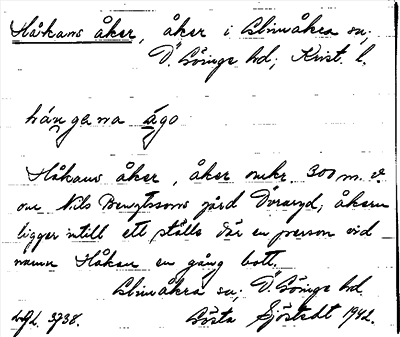 Håkans åker, åker i Glimåkra sn;
Ö. Göinge hd; Krist. l.
hǻŋgana ägo
Håkans åker, åker omkr. 300 m. v.
om Nils Bengtssons gård Öraryd; åkern
ligger intill ett ställe där en person vid
namn Håkan en gång bott.
Glimåkra sn; Ö. Göinge hd.
3738. Gösta Sjöstedt 1942.